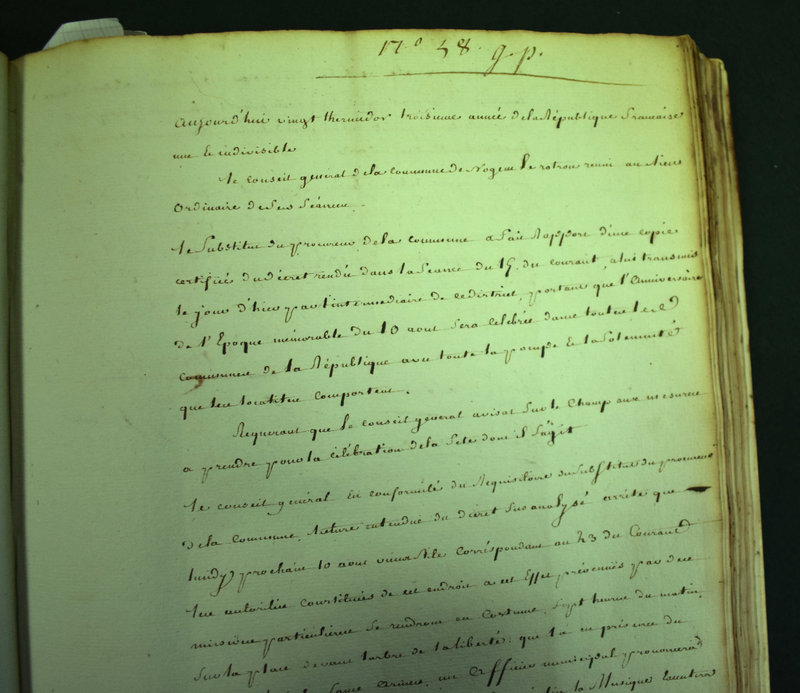 17.° 58. g. p.
Aujourd'hui vingt thermidor troisieme année dela République francaise
une et indivisible
le conseil general dela commune de Nogent le rotrou reuni au lieu
Ordinaire de Ses Séances.
le Substitut du procureur dela commune a fait Rapport d'une copie
certifiée du décret rendu dans la Séance du 15. du courant, a lui transmis
le jour d'hier par l'intermediaire de ce district, portant que l'Anniversaire
de l'Epoque mémorable du 10 aout Sera célébrée dans toutes les
communes de la République avec toute la pompe & la Solennité
que les localités comportent.
Requerant que le conseil general avisat Sur le Champ aux mesures
a prendre pour la célébration dela fete dont il S'agit
le conseil général En conformité du Requisitoire du Substitut du procureur
dela commune, lecture entendue du décret Sus analysé arrête que
lundy prochain 10 aout vieux Stile correspondant au 23 du Courant
les autorités constituées de cet endroit a cet Effet prévenues par des
missives particulieres Se rendront en Costume, Sept heures du matin,
Sur la place devant l'arbre de la liberté: que la en présence du
un Officier municipal prononcera
la Musique Executera